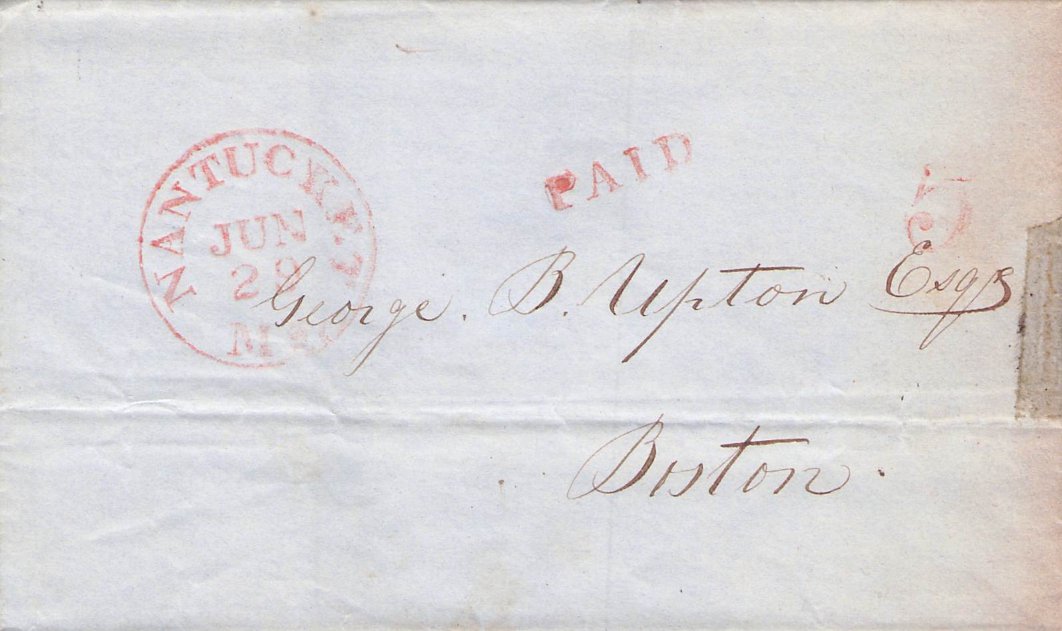 NANTUCKET
JUN
29
MS
PAID
5
George. B. Upton Esqr
Boston.